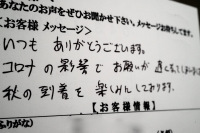 あなたのお声をぜひお聞かせ下さい。メッセージお待ちしてます。
【お客様 メッセージ】
いつも ありがとうございます。
コロナの影響で お願いが 遅くなってしまいました
秋の到着を 楽しみしております。
【お客様情報】